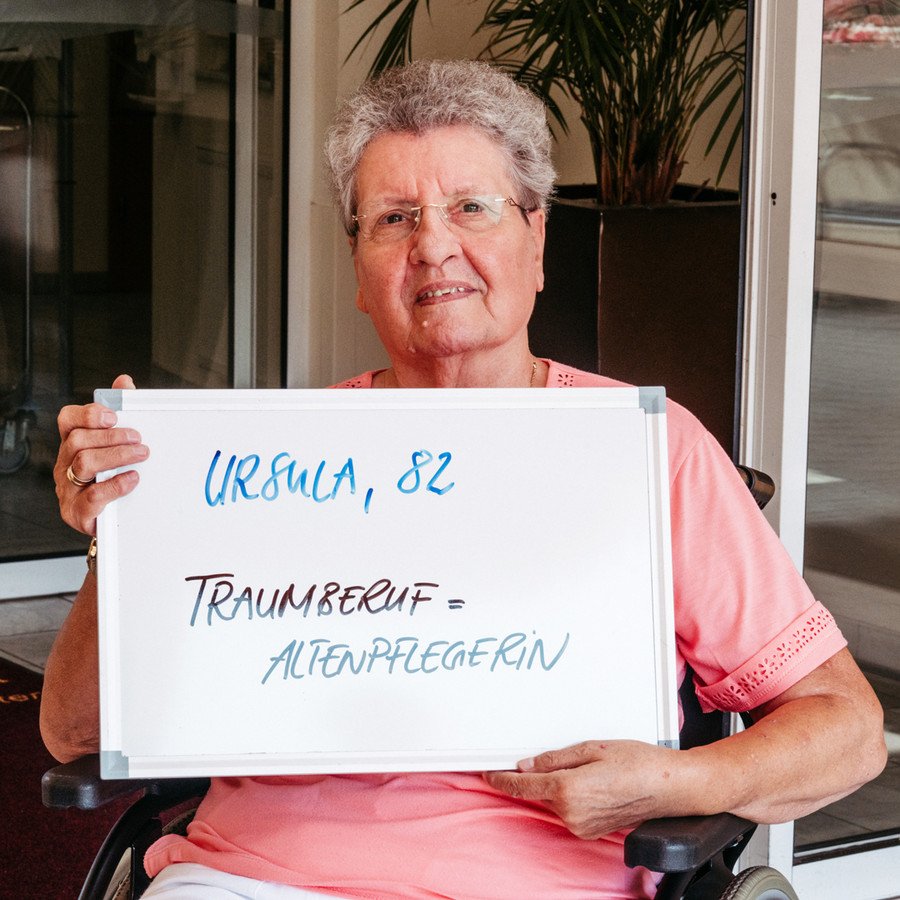 URSULA, 82
TRAUMBERUF =
ALTENPFLEGERIN